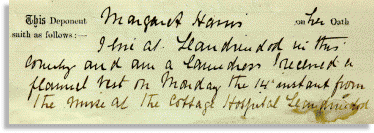 This Deponent Margaret Harris on her Oath
saith as follows:—
I live at Llandrindod in this
county and am a Laundress I received a
flannel vest on Monday the 14th instant from
the nurse at the Cottage Hospital Llandrindod